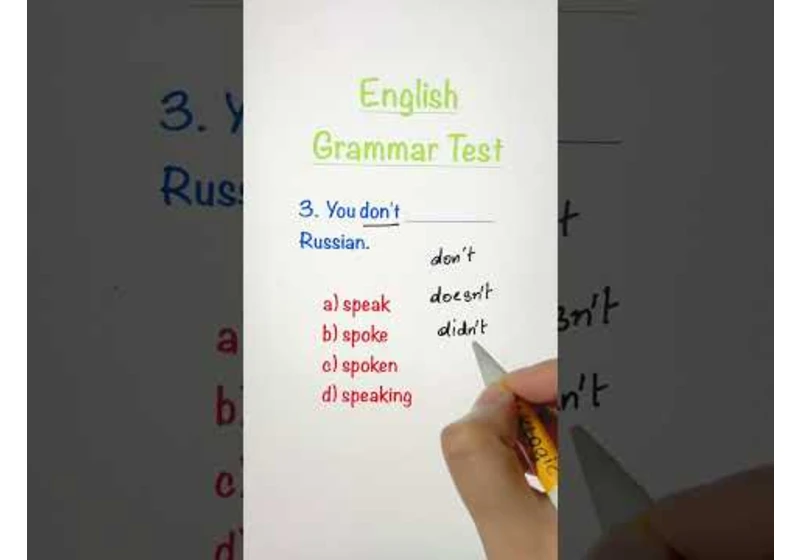 English
Grammar Test
3. You don't ________
Russian.
don't
doesn't
didn't
a) speak
b) spoke
c) spoken
d) speaking